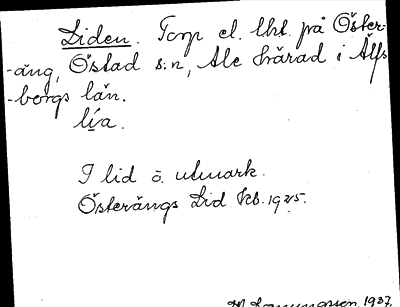 Liden. Torp el. lht. på Öster-
-äng, Östad s:n, Ale härad i Älfs-
-borgs län.
lía.
I lid o. utmark.
Österängs Lid kb. 1925.
1937.